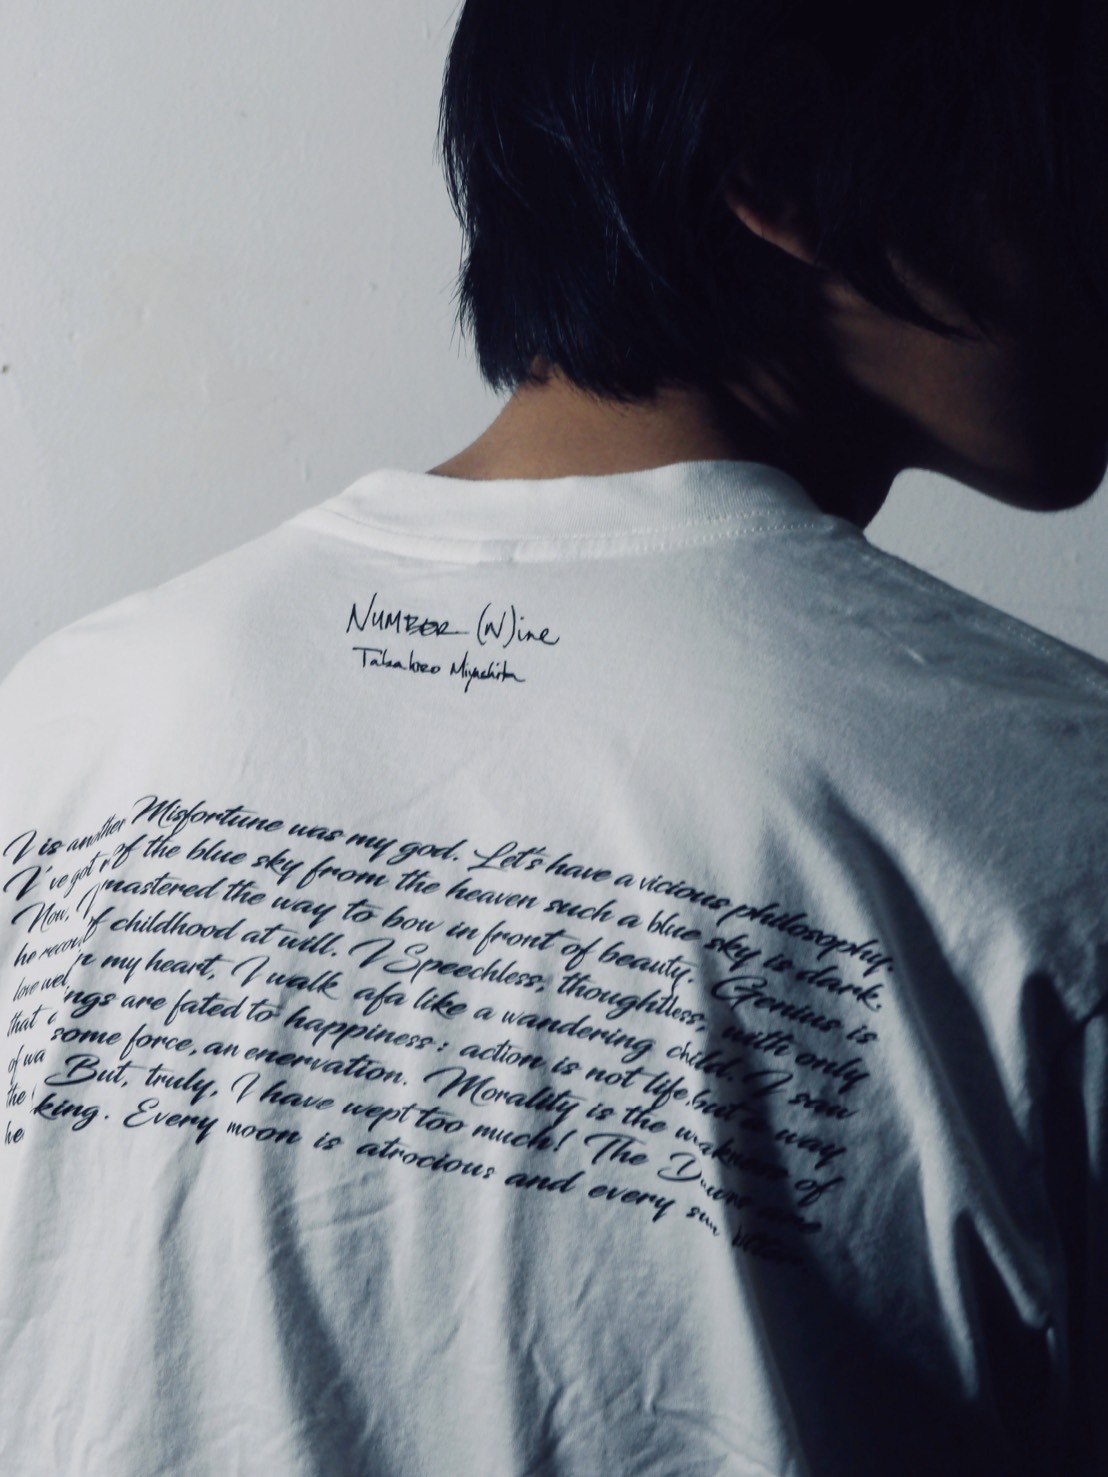 NUMBER (N)ine
Takahiro Miyashita
I is another Misfortune was my god. Let's have a vicious philosophy.
I've got of the blue sky from the heaven such a blue sky is dark.
Now, I mastered the way to bow in front of beauty. Genius is
he of childhood at will. I Speechless, thoughtless, with only
love my heart, I walk afa like a wandering child. I saw
that ngs are fated to happiness: action is not life, but a way
of wa some force, an enervation. Morality is the weakness of
the But, truly, I have wept too much! The Dawns are
he king. Every moon is atrocious and every sun bitter.